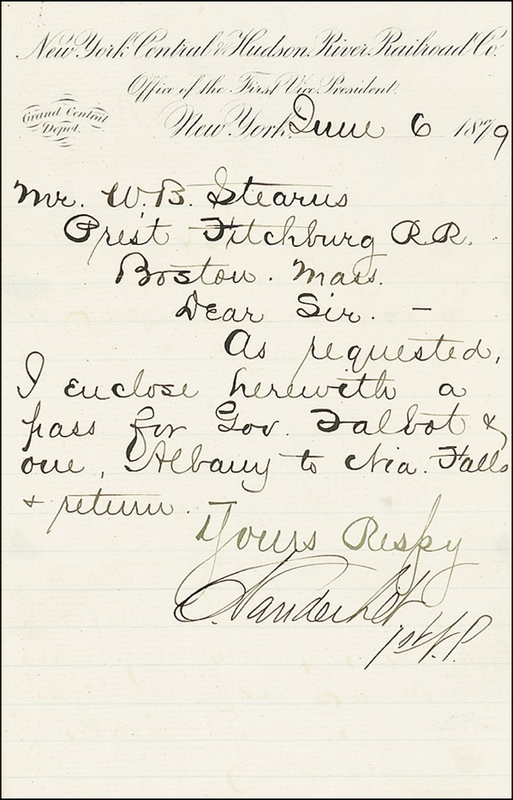 New York Central & Hudson River Railroad Co.
Office of the First Vice President.
Grand Central
Depot.
New York, June 6 1879
Mr. W. B. Stearns
Prest Fitchburg R.R.
Boston. Mass.
Dear Sir. —
As requested,
I enclose herewith a
pass for Gov. Talbot &
one, Albany to Nia. Falls
& return.
Yours Respy
C. Vanderbilt
1st V.P.